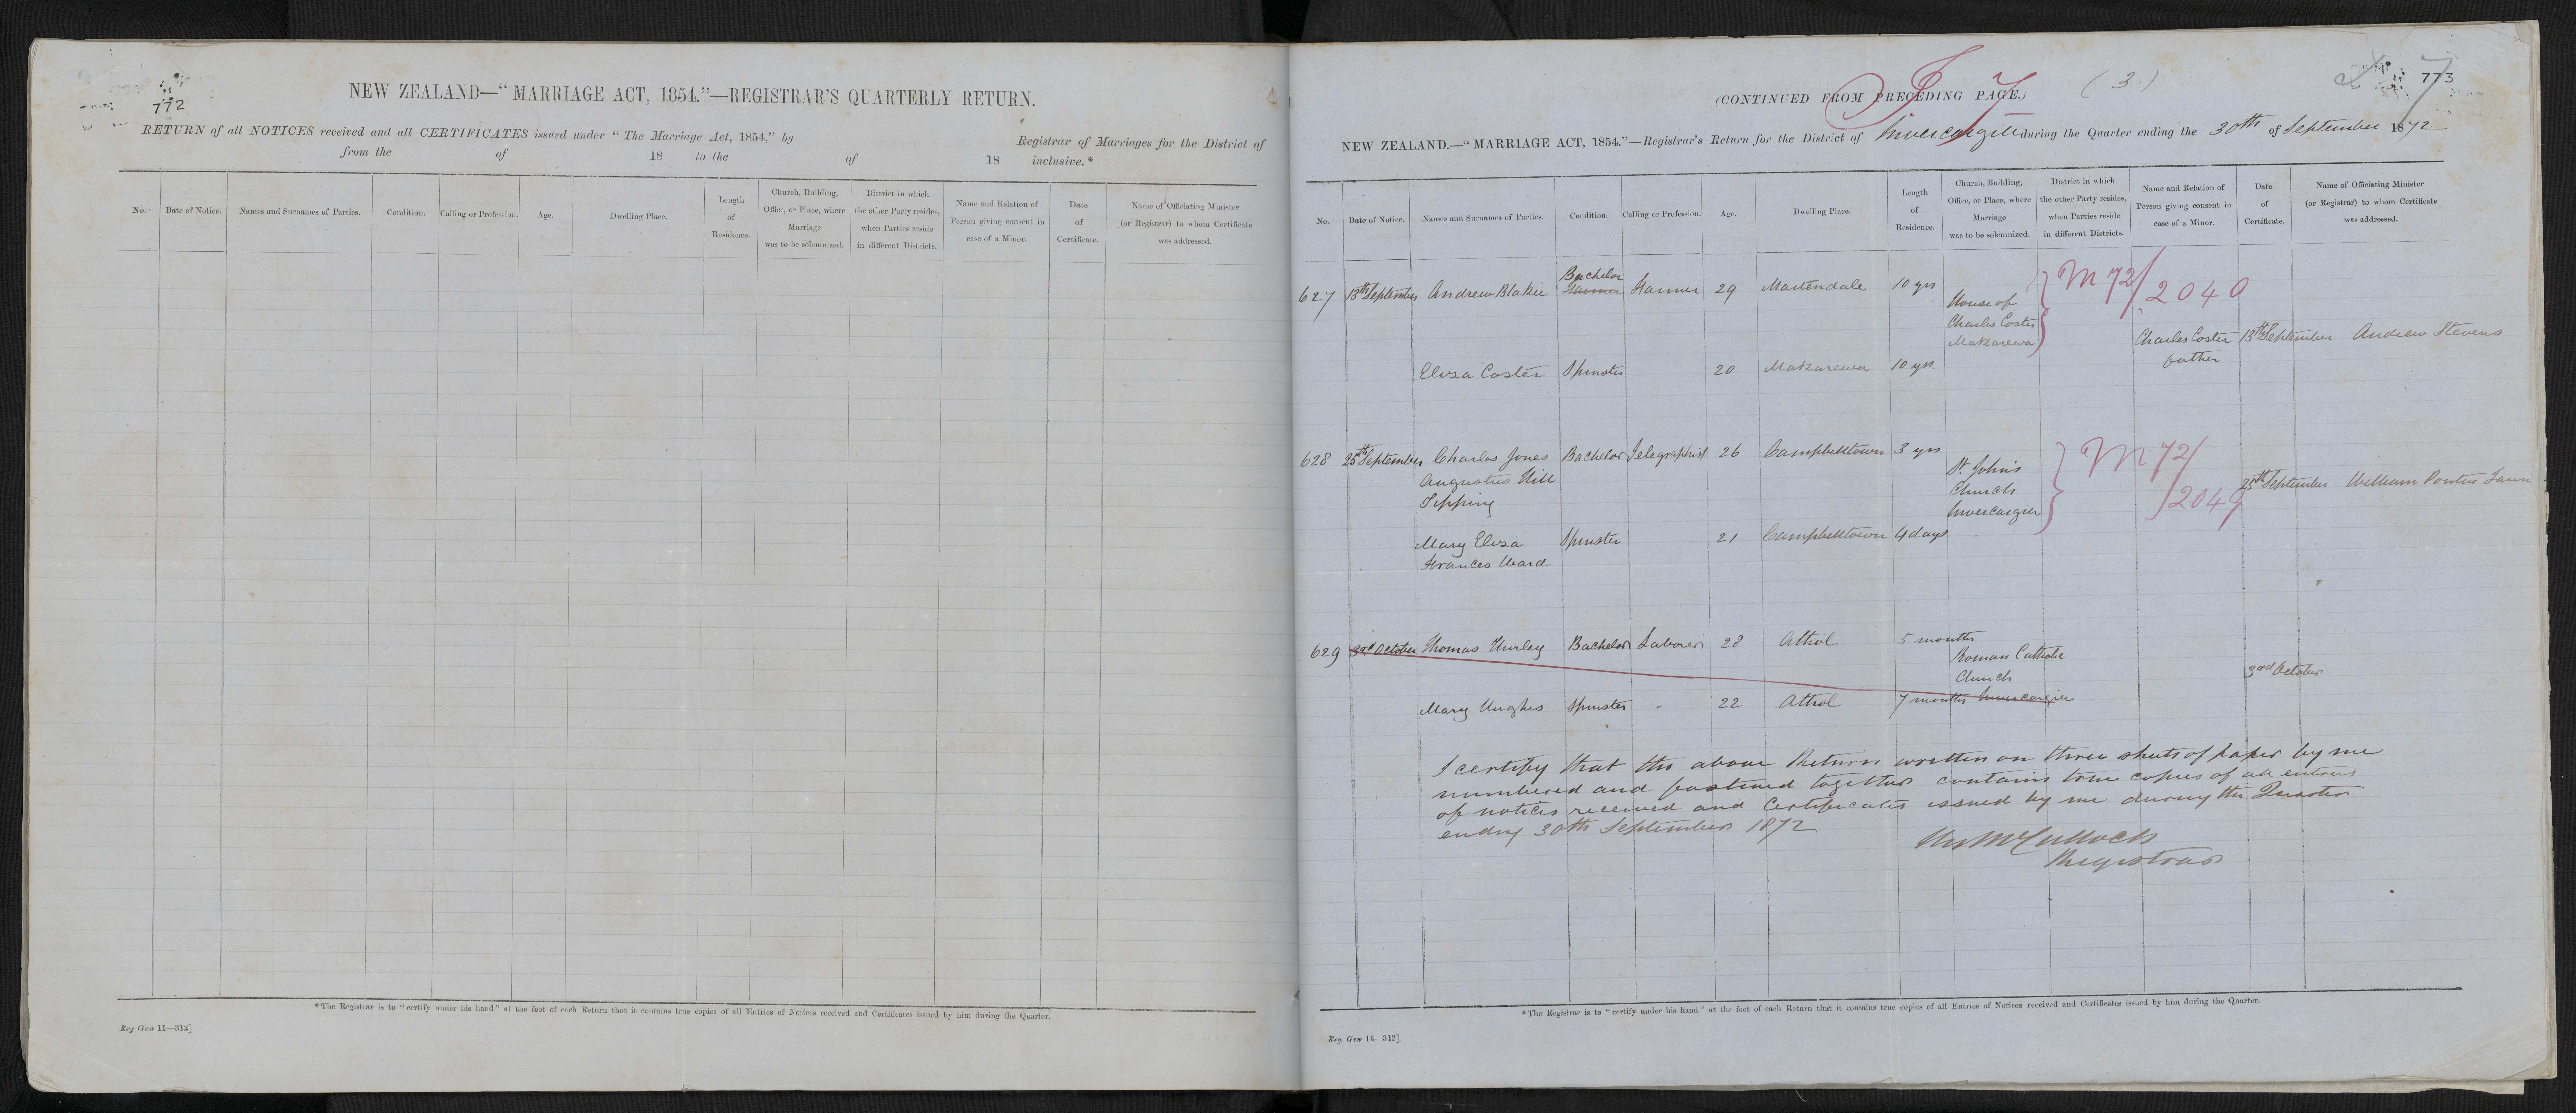 772
NEW ZEALAND—"MARRIAGE ACT, 1854."—REGISTRAR'S QUARTERLY RETURN.
RETURN of all NOTICES received and all CERTIFICATES issued under "The Marriage Act, 1854," by Registrar of Marriages for the District of
from the of 18 to the of 18 inclusive.*
No. Date of Notice. Names and Surnames of Parties. Condition. Calling or Profession. Age. Dwelling Place. Length of Residence. Church, Building, Office, or Place, where Marriage was to be solemnized. District in which the other Party resides, when Parties reside in different Districts. Name and Relation of Person giving consent in case of a Minor. Date of Certificate. Name of Officiating Minister (or Registrar) to whom Certificate was addressed.
*The Registrar is to "certify under his hand" at the foot of each Return that it contains true copies of all Entries of Notices received and Certificates issued by him during the Quarter.
Reg Gen 11—312]
773
(3)
(CONTINUED FROM PRECEDING PAGE.)
NEW ZEALAND.—"MARRIAGE ACT, 1854."—Registrar's Return for the District of Invercargill during the Quarter ending the 30th of September 1872
No. Date of Notice. Names and Surnames of Parties. Condition. Calling or Profession. Age. Dwelling Place. Length of Residence. Church, Building, Office, or Place, where Marriage was to be solemnized. District in which the other Party resides, when Parties reside in different Districts. Name and Relation of Person giving consent in case of a Minor. Date of Certificate. Name of Officiating Minister (or Registrar) to whom Certificate was addressed.
Bachelor
627 13th September Andrew Blakie Farmer Farmer 29 Martendale 10 yrs M 72/2040
House of
Charles Coster
Makarewa
Charles Coster 13th September Andrew Stevens
father
Eliza Coster Spinster 20 Makarewa 10 yrs
628 25th September Charles Jones Bachelor Telegraphist 26 Campbelltown 3 yrs M 72/2049
Augustus Hill
Tipping
St. John's
Church
Invercargill
25th September William
Mary Eliza Spinster 21 Campbelltown 4 days
Frances Ward
629 3rd October Thomas Hurley Bachelor Laborer 28 Athol 5 months
Roman Catholic
Church
3rd October
Mary Hughes Spinster 22 Athol 7 months Invercargill
I certify that the above Return written on three sheets of paper by me
numbered and fastened together contains true copies of all entries
of notices received and Certificates issued by me during the Quarter
ending 30th September 1872
McCulloch
Registrar
*The Registrar is to "certify under his hand" at the foot of each Return that it contains true copies of all Entries of Notices received and Certificates issued by him during the Quarter.
Reg Gen 11—312]